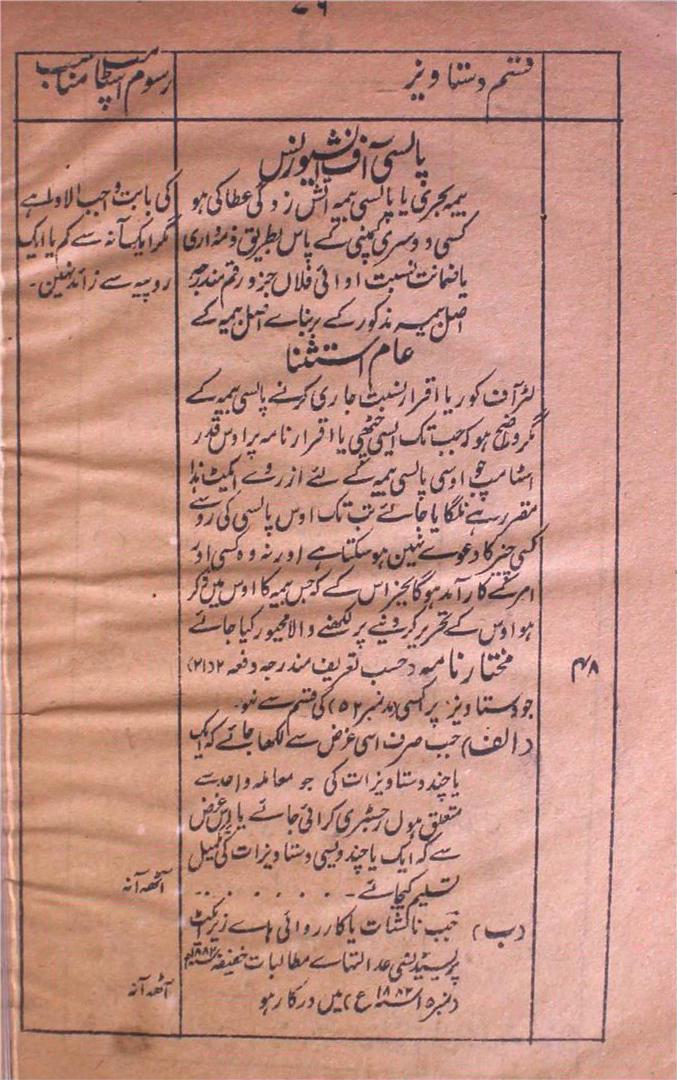 ۷۶
قسم دستاویز
رسوم اسٹامپ مناسب
پالسی آف انشیورنس
بیمہ بحری یا پالسی بیمہ آتش زدگی عطا کی ہو
کسی دوسری کمپنی کے پاس بطریق ذمہ داری
یا ضمانت نسبت ادائی فلاں جزو رقم مندرجہ
اصل بیمہ مذکور کے بربناے اصل بیمہ کے
کی بابت واجب الادا ہے
مگر ایک آنہ سے کم یا ایک
روپیہ سے زائد نہین۔
عام استثنا
لٹر آف کور یا اقرار نسبت جاری کرنے پالسی بیمہ کے
مگر واضح ہو کہ جب تک ایسی چٹھی یا اقرار نامہ پر اوس قدر
اسٹامپ جو اوسی پالسی بیمہ کے لئے ازروے ایکٹ ہذا
مقرر ہے نلگایا جائے تب تک اوس پالسی کی روسے
کسی چیز کا دعوے نہین ہوسکتا ہے اور نہ وہ کسی اور
امر کے کار آمد ہوگا بجز اس کے کہ جس بیمہ کا اوس مین ذکر
ہو اوس کے تحریر کردینے پر لکھنے والا مجبور کیا جائے
۴۸
مختار نامہ (حسب تعریف مندرجہ دفعہ ۲ (۲۱)
جو دستاویز پر کسی (مد نمبر ۵۲) کی قسم سے نہو۔
(الف) جب صرف اسی غرض سے لکھا جائے کہ ایک
یا چند دستاویزات کی جو معاملہ واحد سے
متعلق ہوں رجسٹری کرائی جائے یا اس غرض
سے کہ ایک یا چند ویسی دستاویزات کی تکمیل
تسلیم کیجائے - . . . . . . . .
آٹھہ آنہ
(ب) جب نالشات یا کارروائی ہاے زیر ایکٹ
پریسیڈنسی عدالتہاے مطالبات خفیفہ ۱۸۸۲ء
(نمبر ۱۵ ۱۸۸۲ ع) مین درکار ہو
آٹھہ آنہ